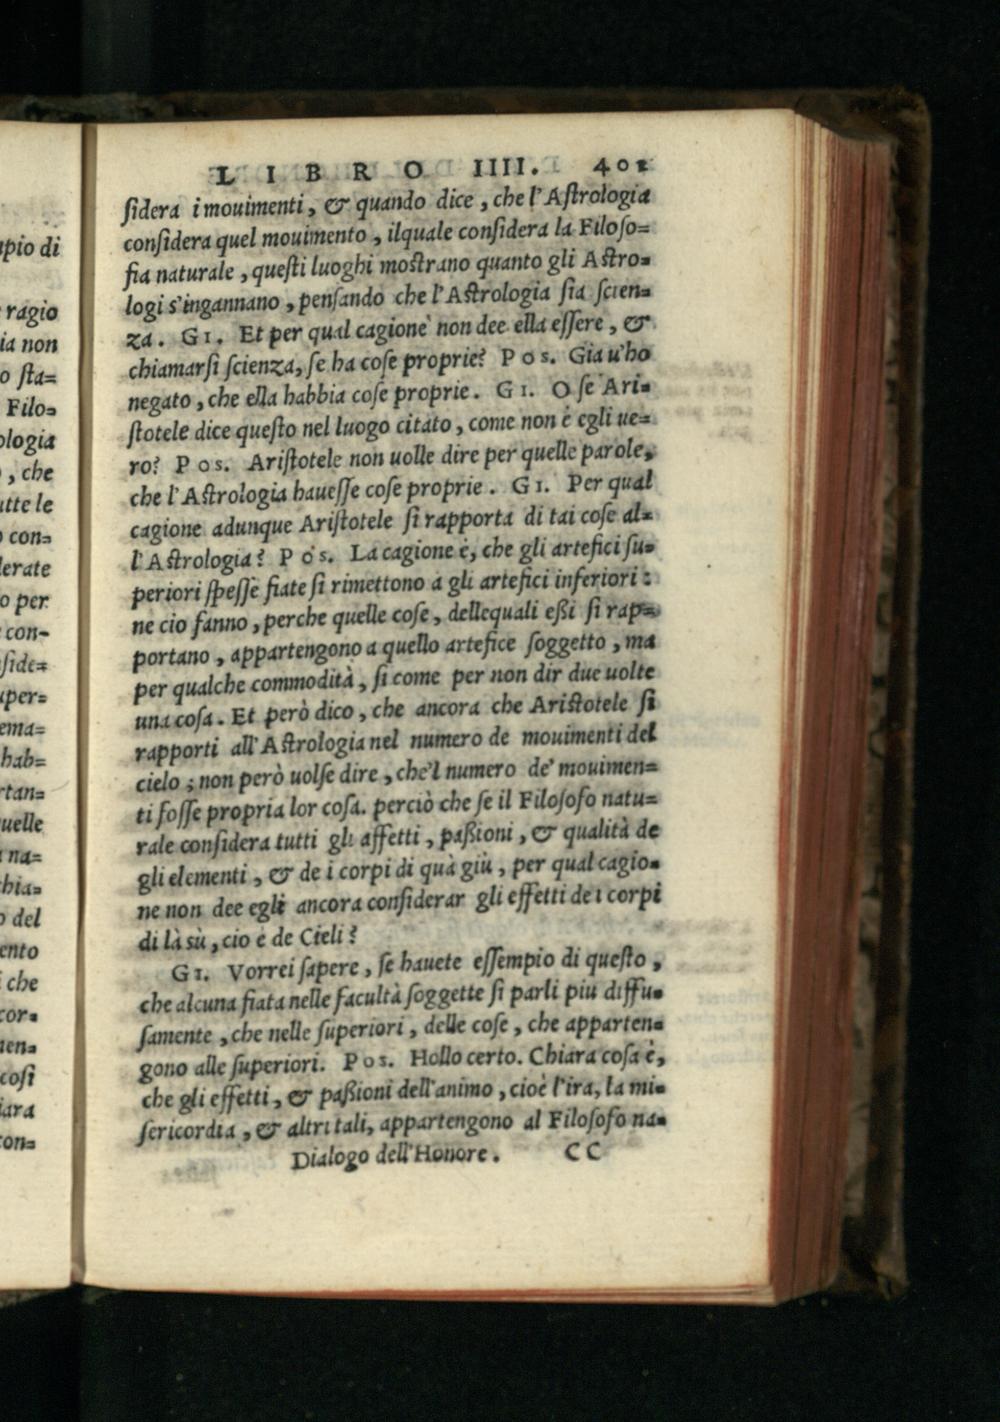 LIBRO IIII. 401
ſidera i mouimenti, & quando dice, che l'Aſtrologia
conſidera quel mouimento, ilquale conſidera la Filoſo=
fia naturale, queſti luoghi moſtrano quanto gli Aſtro=
logi s'ingannano, penſando che l'Aſtrologia ſia ſcien=
za. GI. Et per qual cagione non dee ella eſſere, &
chiamarſi ſcienza, ſe ha coſe proprie? Pos. Gia u'ho
negato, che ella habbia coſe proprie. GI. O ſe Ari=
ſtotele dice queſto nel luogo citato, come non è egli ue=
ro? Pos. Ariſtotele non uolle dire per quelle parole,
che l'Aſtrologia haueſſe coſe proprie. GI. Per qual
cagione adunque Ariſtotele ſi rapporta di tai coſe al=
l'Aſtrologia? Pos. La cagione è, che gli artefici ſu=
periori ſpeſſe fiate ſi rimettono a gli artefici inferiori:
ne cio fanno, perche quelle coſe, dellequali eßi ſi rap=
portano, appartengono a quello artefice ſoggetto, ma
per qualche commodità, ſi come per non dir due uolte
una coſa. Et però dico, che ancora che Ariſtotele ſi
rapporti all'Aſtrologia nel numero de mouimenti del
cielo; non però uolſe dire, che'l numero de' mouimen=
ti foſſe propria lor coſa. perciò che ſe il Filoſofo natu=
rale conſidera tutti gli affetti, paßioni, & qualità de
gli elementi, & de i corpi di quà giù, per qual cagio=
ne non dee egli ancora conſiderar gli effetti de i corpi
di là sù, cio è de Cieli?
GI. Vorrei ſapere, ſe hauete eſſempio di queſto,
che alcuna fiata nelle facultà ſoggette ſi parli piu diffu=
ſamente, che nelle ſuperiori, delle coſe, che apparten=
gono alle ſuperiori. Pos. Hollo certo. Chiara coſa è,
che gli effetti, & paßioni dell'animo, cioè l'ira, la mi=
ſericordia, & altri tali, appartengono al Filoſofo na=
Dialogo dell'Honore. CC
pio di
ragio
ia non
o ſta=
Filo=
ologia
, che
utte le
con=
derate
o per
con-
ſide=
per=
ema=
hab=
rtan=
uelle
na=
hia=
o del
ento
i che
cor=
men=
coſi
iara
con=